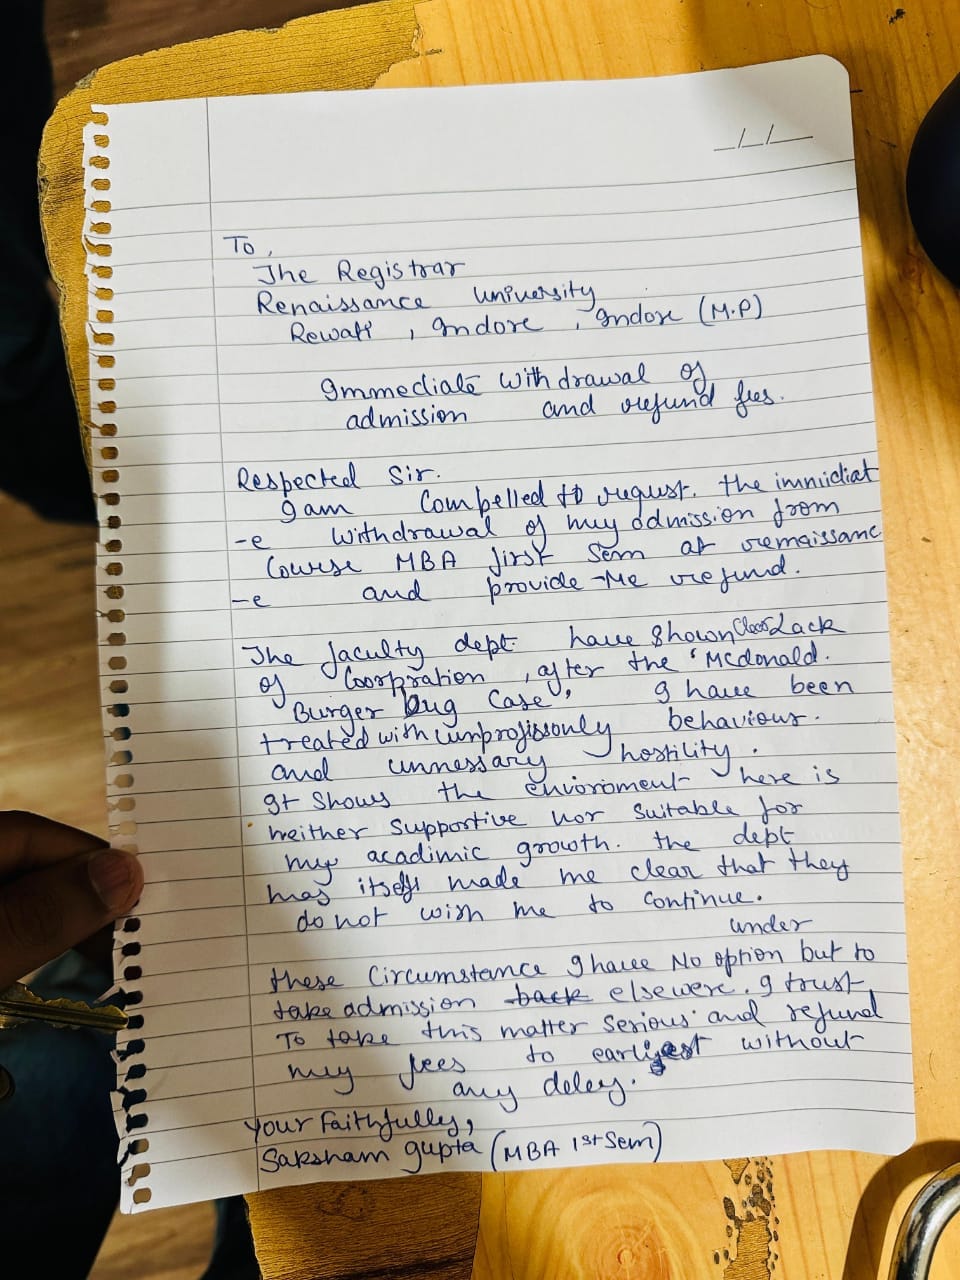 _/_/__
To,
The Registrar
Renaissance university
Rewati , Indore , Indore (M.P)
Immediate withdrawal of
admission and refund fees.
Respected Sir.
I am Compelled to request. the immidiat
-e withdrawal of my admission from
Course MBA first Sem at remaissanc
-e and provide me refund.
The faculty dept have shown Clear Lack
of Coorpration , after the 'Mcdonald.
Burger bug Case' I have been
treated with unprofissonly behaviour.
and unnessary hostility.
It Shows the enviroment here is
neither supportive nor suitable for
my acadimic growth. the dept
has itself made me clear that they
do not wish me to continue.
under
these Circumstance I have No option but to
take admission back elsewere. I trust
To take this matter serious and refund
my fees to earliest without
any deley.
your Faithfully,
Saksham gupta (MBA 1st Sem)